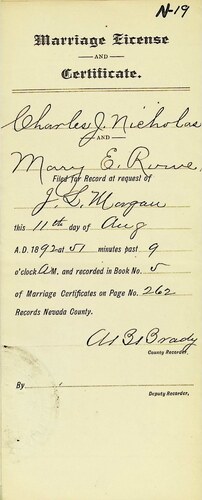 N-19
Marriage License
AND
Certificate.
Charles J. Nicholas
AND
Mary E. Rowe,
Filed for Record at request of
J. L. Morgan
this 11th day of Aug
A.D. 1892 at 51 minutes past 9
o'clock A M, and recorded in Book No. 5
of Marriage Certificates on Page No. 262
Records Nevada County.
Brady
County Recorder,
By
Deputy Recorder,